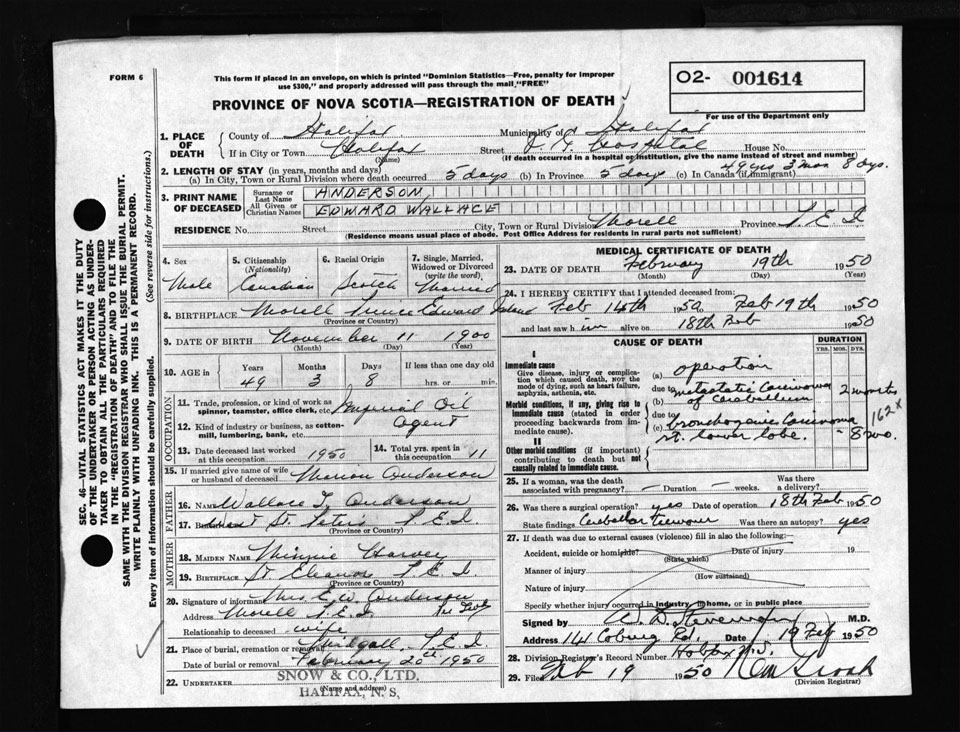 FORM 6
This form if placed in an envelope, on which is printed "Dominion Statistics—Free, penalty for improper
use $300," and properly addressed will pass through the mail, "FREE"
O2- 001614
For use of the Department only
PROVINCE OF NOVA SCOTIA—REGISTRATION OF DEATH
1. PLACE OF DEATH
County of Halifax Municipality of Halifax
If in City or Town Halifax (Name) Street Hospital House No.
(If death occurred in a hospital or institution, give the name instead of street and number)
2. LENGTH OF STAY (in years, months and days)
(a) In City, Town or Rural Division where death occurred 5 days (b) In Province 5 days (c) In Canada (if immigrant) 49 yrs 3 mon 8 dys.
3. PRINT NAME OF DECEASED
Surname or Last Name ANDERSON
All Given or Christian Names EDWARD WALLACE
RESIDENCE No. Street City, Town or Rural Division Morell Province P.E.I
(Residence means usual place of abode. Post Office Address for residents in rural parts not sufficient)
4. Sex Male
5. Citizenship (Nationality) Canadian
6. Racial Origin Scotch
7. Single, Married, Widowed or Divorced (write the word) Married
8. BIRTHPLACE Morell Prince Edward Island
(Province or Country)
9. DATE OF BIRTH November 11 1900
(Month) (Day) (Year)
10. AGE in Years 49 Months 3 Days 8 If less than one day old hrs. or min.
OCCUPATION
11. Trade, profession or kind of work as spinner, teamster, office clerk, etc. Imperial Oil
Agent
12. Kind of industry or business, as cotton-mill, lumbering, bank, etc.
13. Date deceased last worked at this occupation 1950
14. Total yrs. spent in this occupation 11
15. If married give name of wife or husband of deceased Marion Anderson
FATHER
16. Name Wallace Anderson
17. Birthplace St. Peters P.E.I
(Province or Country)
MOTHER
18. MAIDEN NAME Minnie Harvey
19. BIRTHPLACE St. Eleanors P.E.I.
(Province or Country)
20. Signature of informant Mrs. E. W. Anderson
Address Morell P.E.I.
Relationship to deceased wife
21. Place of burial, cremation or removal P.E.I
Date of burial or removal February 20th 1950
22. UNDERTAKER SNOW & CO., LTD.
(Name and address)
HALIFAX, N. S,
MEDICAL CERTIFICATE OF DEATH
23. DATE OF DEATH February 19th 1950
(Month) (Day) (Year)
24. I HEREBY CERTIFY that I attended deceased from:
Feb 14th 1950 to Feb 19th 1950
and last saw him alive on 18th Feb 1950
CAUSE OF DEATH
DURATION
YRS. MOS. DYS.
I
Immediate cause
Give disease, injury or complication which caused death, NOT the mode of dying, such as heart failure, asphyxia, asthenia, etc.
(a) operation
due to
(b) metastatic Carcinoma of Cerebellum 2 months
Morbid conditions, if any, giving rise to immediate cause (stated in order proceeding backwards from immediate cause).
due to
(c) bronchogenic Carcinoma rt. lower lobe. 8 mo.
162 x
II
Other morbid conditions (if important) contributing to death but not causally related to immediate cause.
25. If a woman, was the death associated with pregnancy? — Duration — weeks. Was there a delivery?
26. Was there a surgical operation? yes Date of operation 18th Feb 1950
State findings Cerebellar tumour Was there an autopsy? yes
27. If death was due to external causes (violence) fill in also the following:
Accident, suicide or homicide? Date of injury 19
(State which)
Manner of injury
(How sustained)
Nature of injury
Specify whether injury occurred in industry, in home, or in public place
Signed by M.D.
Address 141 Coburg Rd. Date 19 Feb 1950
28. Division Registrar's Record Number Halifax N.S.
29. Filed Feb 19 1950
(Division Registrar)
SEC. 46—VITAL STATISTICS ACT MAKES IT THE DUTY
OF THE UNDERTAKER OR PERSON ACTING AS UNDER-
TAKER TO OBTAIN ALL THE PARTICULARS REQUIRED
IN THE "REGISTRATION OF DEATH" AND TO FILE THE
SAME WITH THE DIVISION REGISTRAR WHO SHALL ISSUE THE BURIAL PERMIT.
WRITE PLAINLY WITH UNFADING INK. THIS IS A PERMANENT RECORD.
Every item of information should be carefully supplied. (See reverse side for instructions.)